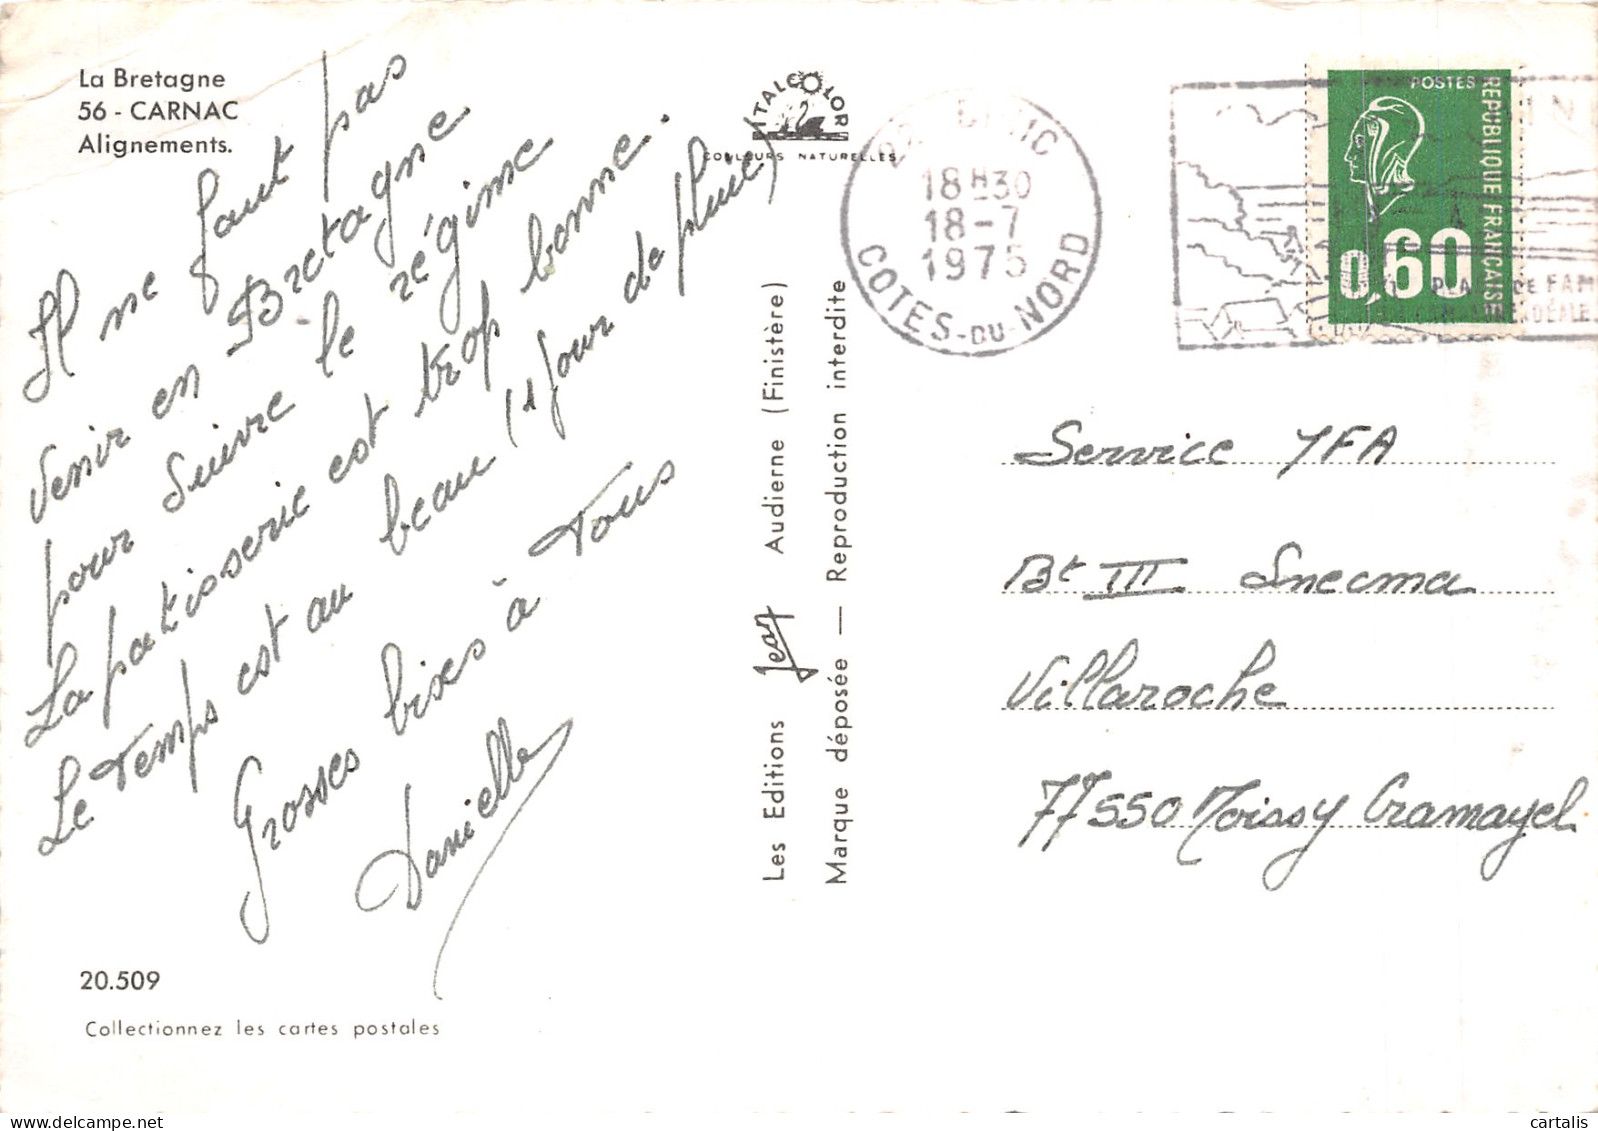 La Bretagne
56 - CARNAC
Alignements.
Il ne faut pas
venir en Bretagne
pour suivre le régime
La patisserie est trop bonne.
Le Temps est au beau (1 jour de pluie)
Grosses bises à Tous
Danielle
20.509
Collectionnez les cartes postales
ITALCOLOR
COULEURS NATURELLES
Les Editions Jean Audierne (Finistère)
Marque déposée — Reproduction interdite
22 BINIC
18H30
18-7
1975
COTES-DU-NORD
POSTES
REPUBLIQUE FRANÇAISE
0,60
Service YFA
Bt III Snecma
Villaroche
77550 Moissy Cramayel
cartalis